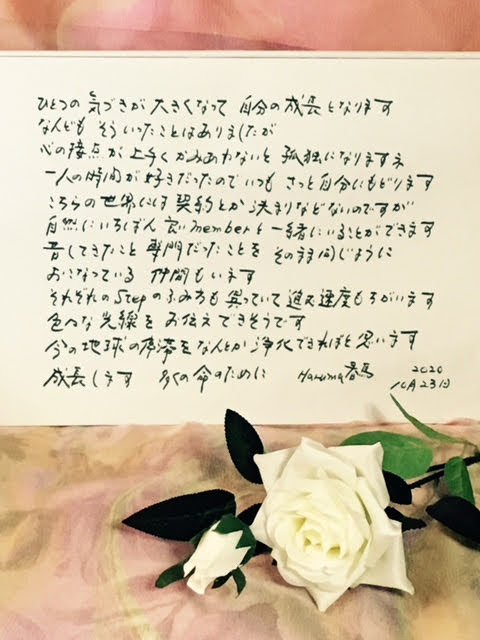 ひとつの 気づきが 大きくなって 自分の 成長 となります
なんども そういったことは ありましたが
心の 接点が 上手く かみあわないと 孤独に なりますネ
一人の 時間が 好きだったので いつも さっと 自分にもどります
こちらの 世界には 契約とか 決まりなどないのですが
自然に いちばん 良い memberと 一緒に いることが できます
昔してきたこと 専門だったことを そのまま同じように
おこなっている 仲間も います
それぞれの Stepの ふみ方も 異っていて 進む 速度も ちがいます
色々な 光線を お伝え できそうです
今の 地球の 停滞を なんとか 浄化できればと 思います
成長します 多くの 命のために Haruma 春馬 2020
10月23日